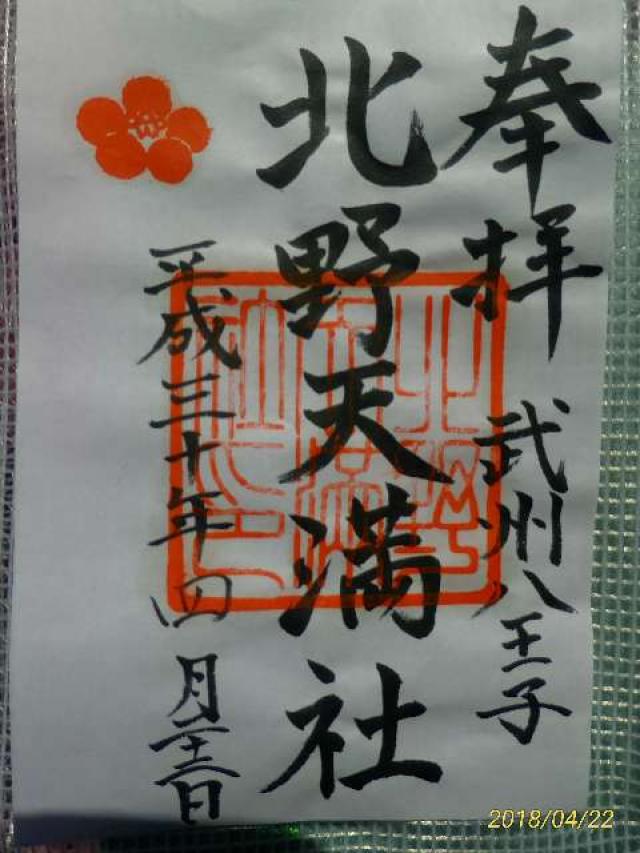 奉拝
武州八王子
北野天満社
平成三十年四月廿二日
2018/04/22